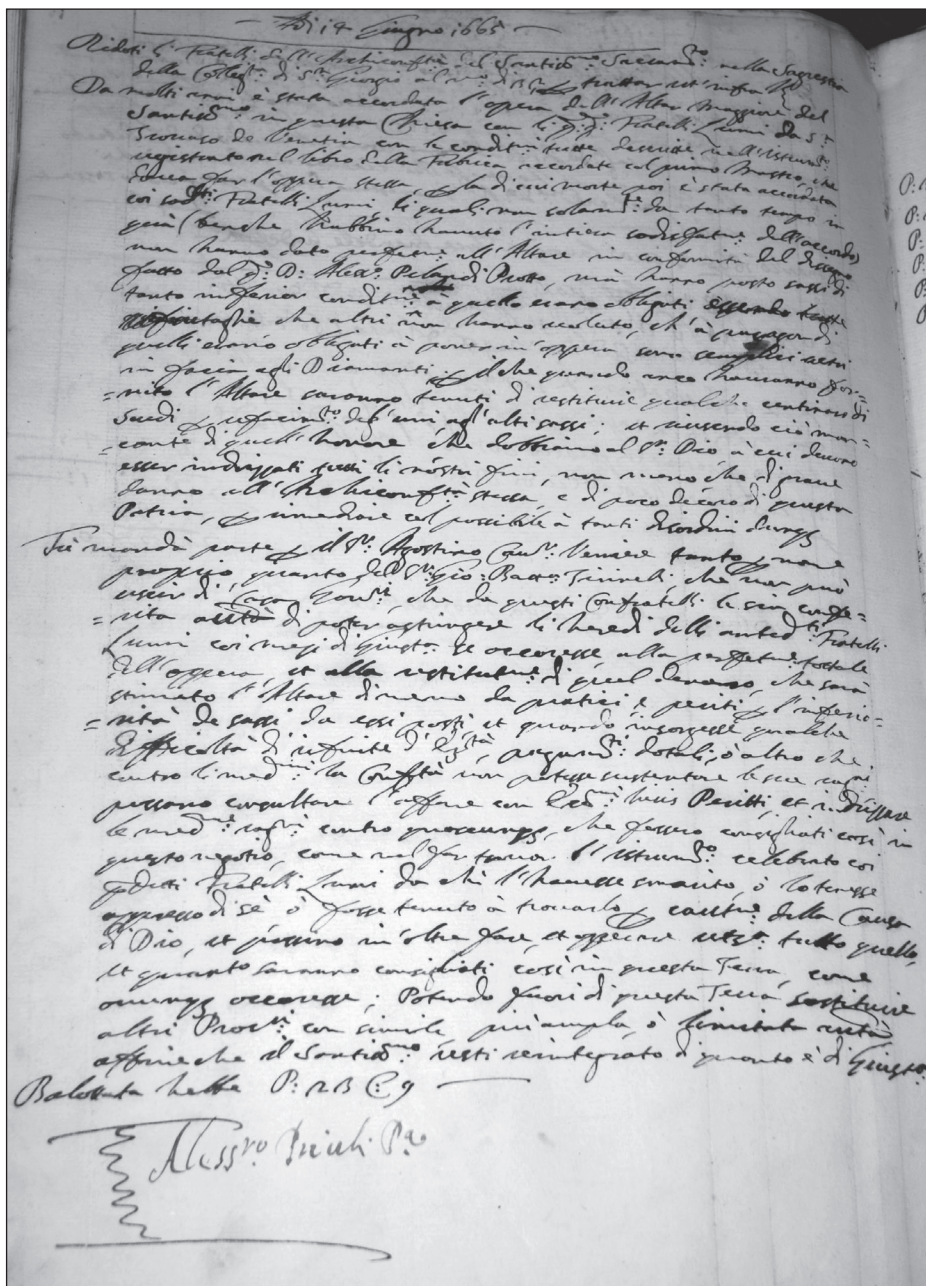 Adi 14 Giugno 1665
Ridoti li Fratelli dell'Archiconfr.tà del Santiss.mo Sacram.to nella Sagrestia
della Colleg.ta di S.n Giorgio al n.o di trattar ut infra
Da molti anni è stata accordata l'opera dell'Altar Maggiore del
Santiss.mo in questa Chiesa con li Fratelli Lumi da S.n
de Venetia con le conditni tutte descritte nell'istrum.to
registrato nel libro della Fabrica accordate col primo Mastro, che
dovea far l'oppera stessa, p la di cui morte poi è stata accordata
coi sod.tti Fratelli Lumi, li quali non solam.te da tanto tempo in
quà (benche habbino havuto l'intiera sodisfatne dell'accordo)
non hanno dato perfetne all'Altare in conformità del dissegno
fatto dal q. D: Aless.o Proto, mà hanno posto sassi di
tanto inferior conditne à quello erano obligati essendo tutte
che altri non hanno voluto, ch'à paragon di
quelli erano obligati à poner in oppera sono semplici vetri
in facia agli Diamanti; p il che quando anco haveranno for=
=nito l'Altare saranno tenuti di restituir qualche centinaro di
Scudi p refacim.to degl'uni, agl'altri sassi; et riuscendo ciò man=
=cante di quell'honore che dobbiamo al S.r Dio à cui devono
esser indrizzati tutti li nostri fini, non meno che di grave
danno all'Archiconfr.tà stessa, e di poco decoro di questa
Patria, p rimediare col possibile à tanti disordini
Fù mandà parte p il S.r Agostino tanto p nome
proprio, quanto del S.r Gio: Batt.a che non può
uscir di Casa che da questi Confratelli le sia confe=
=rita autt.tà di poter astringere li heredi delli anted.ti Fratelli
Lumi coi mezi di Giust.a se occoresse alla perfetne totale
dell'oppera, et alla restitutne di quel denaro, che sarà
stimato l'Altare di meno da pratici e periti p l'inferio=
=rità de sassi da essi posti et quando insorgesse qualche
difficoltà di dotali, ò altro che
contro li med.mi la Confr.tà non potesse sustentare le sue ragni
possano consultare l'affare con Ecc.mi Iuris Periti, et indrizzare
le med.me ragni contro che fossero consigliati così in
questo negotio, come nel far trovar l'istrum.to celebrato coi
p.detti Fratelli Lumi da chi l'havesse smarito, ò lo tenesse
appresso di sè ò fosse tenuto à trovarlo p cautne della Causa
di Dio, et possino in oltre fare, et operare tutto quello,
et quanto saranno consigliati così in questa Terra, come
occoresse; Potendo fuori di questa Terra sostituire
altri Proc.ri con simile più ampla, ò limitata autt.tà
affine che il Santiss.mo resti reintegrato di quanto è di Giust.a
Balottata hebbe P: 28 C: 9
Aless.ro